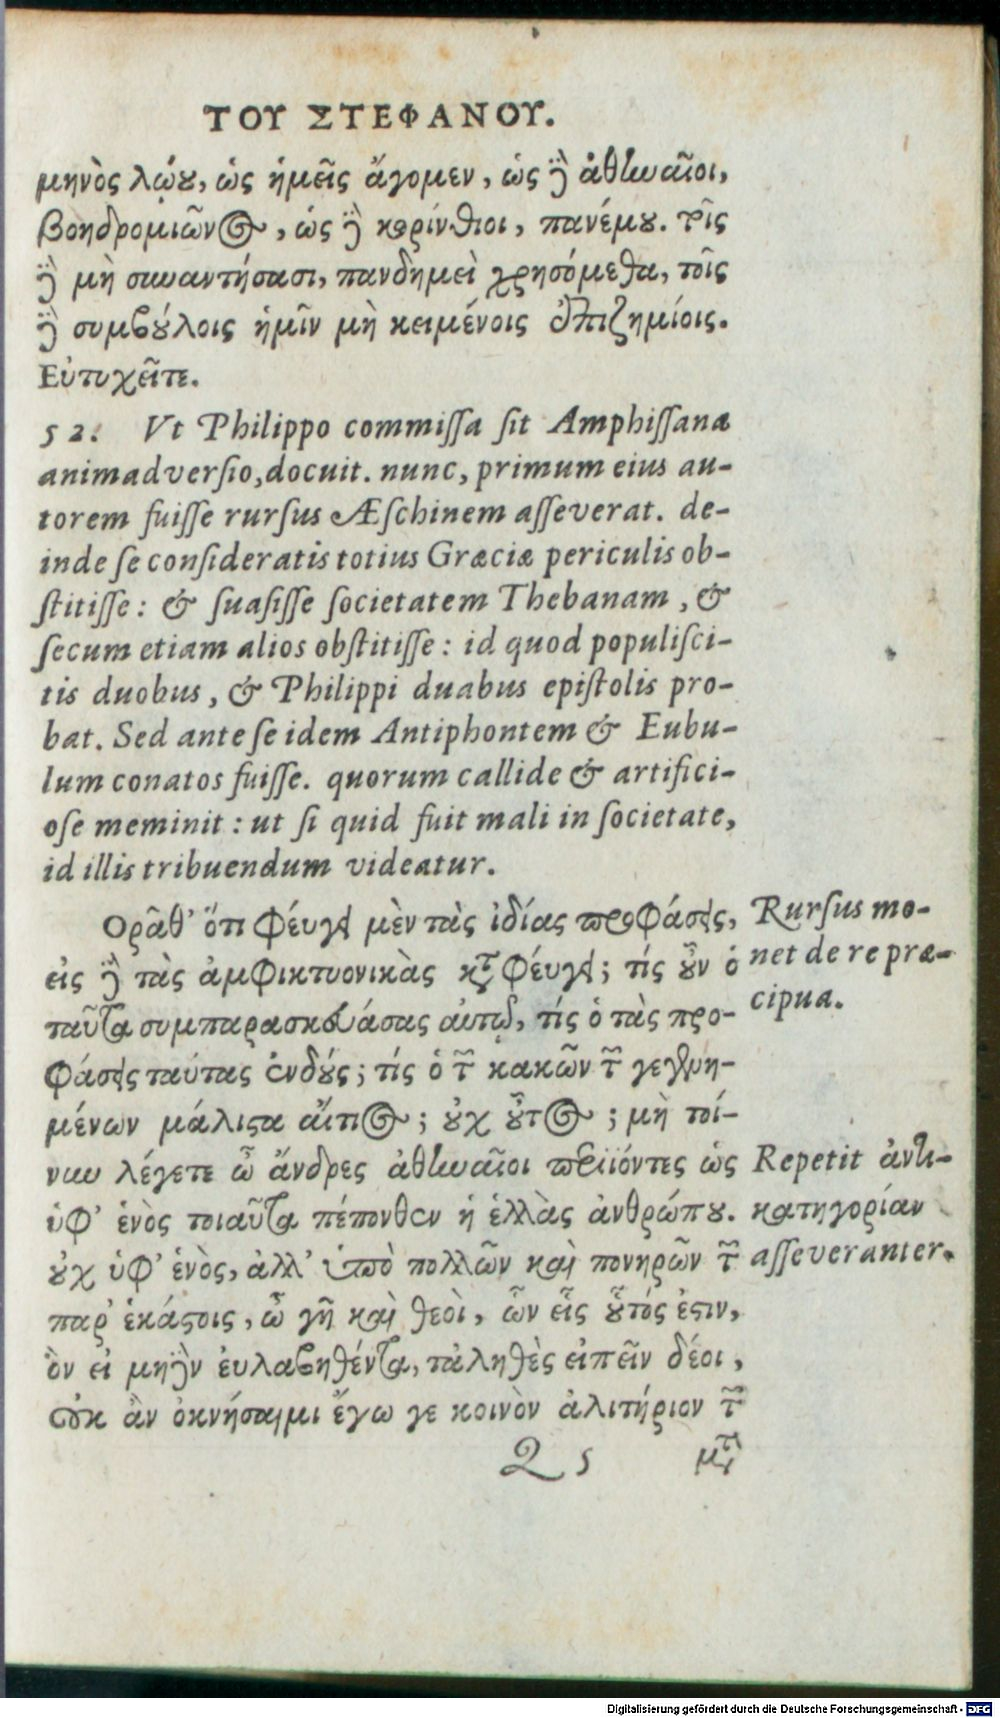 ΤΟΥ ΣΤΕΦΑΝΟΥ.
μηνὸς λῴου, ὡς ἡμεῖς ἄγομεν, ὡς δὲ ἀθηναῖοι,
βοηδρομιῶνος, ὡς δὲ κορίνθιοι, πανέμου. τοῖς
δὲ μὴ συναντήσασι, πανδημεὶ χρησόμεθα, τοῖς
δὲ συμβούλοις ἡμῖν μὴ κειμένοις ἐπιζημίοις.
Εὐτυχεῖτε.
52. Vt Philippo commiſſa ſit Amphiſſana
animadverſio, docuit. nunc, primum eius au-
torem fuiſſe rurſus Æſchinem aſſeverat. de-
inde ſe conſideratis totius Græciæ periculis ob-
ſtitiſſe: & ſuaſiſſe ſocietatem Thebanam, &
ſecum etiam alios obſtitiſſe: id quod populiſci-
tis duobus, & Philippi duabus epiſtolis pro-
bat. Sed ante ſe idem Antiphontem & Eubu-
lum conatos fuiſſe. quorum callide & artifici-
oſe meminit: ut ſi quid fuit mali in ſocietate,
id illis tribuendum videatur.
Ορᾶθ' ὅτι φεύγει μὲν τὰς ἰδίας προφάσεις,
εἰς δὲ τὰς ἀμφικτυονικὰς καταφεύγει; τίς οὖν ὁ
ταῦτα συμπαρασκευάσας αὐτῷ, τίς ὁ τὰς προ-
φάσεις ταύτας ἐνδούς; τίς ὁ τῶν κακῶν τῶν γεγενη-
μένων μάλιστα αἴτιος; οὐχ οὗτος; μὴ τοί-
νυν λέγετε ὦ ἄνδρες ἀθηναῖοι περιϊόντες ὡς
ὑφ' ἑνὸς τοιαῦτα πέπονθεν ἡ ἑλλὰς ἀνθρώπου.
οὐχ ὑφ' ἑνὸς, ἀλλ' ὑπὸ πολλῶν καὶ πονηρῶν τῶν
παρ' ἑκάστοις, ὦ γῆ καὶ θεοὶ, ὧν εἷς οὗτός ἐστιν,
ὃν εἰ μηδὲν ἐυλαβηθέντα, τἀληθὲς εἰπεῖν δέοι,
οὐκ ἂν ὀκνήσαιμι ἔγω γε κοινὸν ἀλιτήριον τῶν
Q 5 μετὰ
Rurſus mo-
net de re præ-
cipua.
Repetit ἀντι-
κατηγορίαν
aſſeveranter.
Digitalisierung gefördert durch die Deutsche Forschungsgemeinschaft - DFG